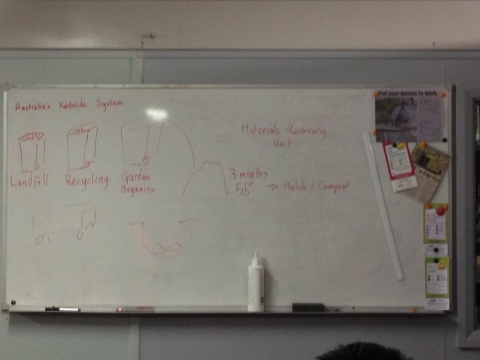 Australia's Kerbside System
Materials Recovery
Unit
Landfill
Recycling
Garden
Organics
3 months
55°
Mulch / Compost
Put your worms to work